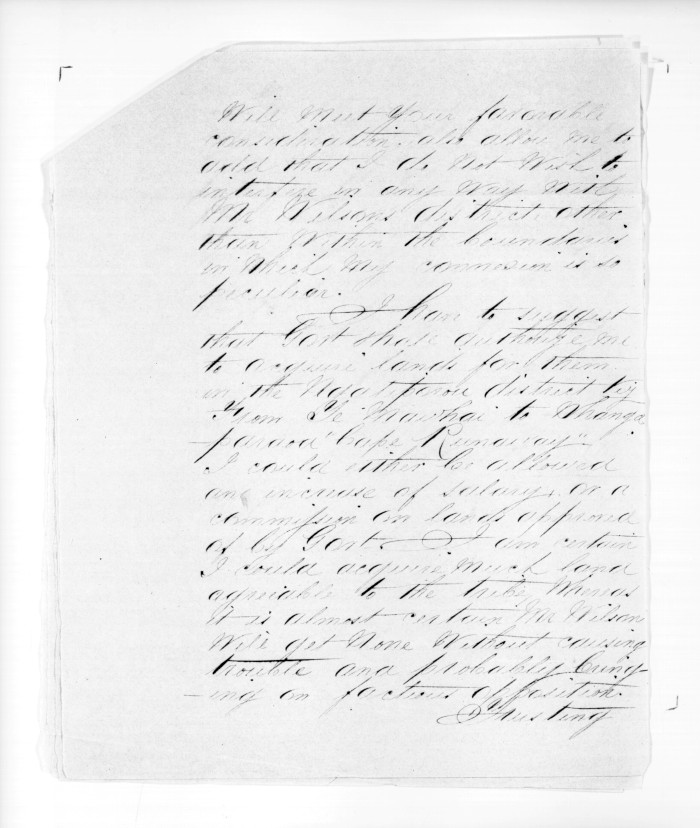 Will meet your favorable
consideration, also allow me to
add that I do not wish to
interfere in any way with
Mr Wilsons district other
than within the boundaries
in which my connexion is so
peculiar.
I have to suggest
that Govt shall authorize me
to acquire lands for them
in the Ngatiporou district
From Te Mawhai to Whanga
-paraoa "Cape Runaway"
I could either be allowed
an increase of salary, or a
commission on lands approved
of by Govt. I am certain
I could acquire much land
agreeable to the tribe, whereas
it is almost certain Mr Wilson
will get none without causing
trouble and probably bring-
-ing on factious opposition.
Trusting